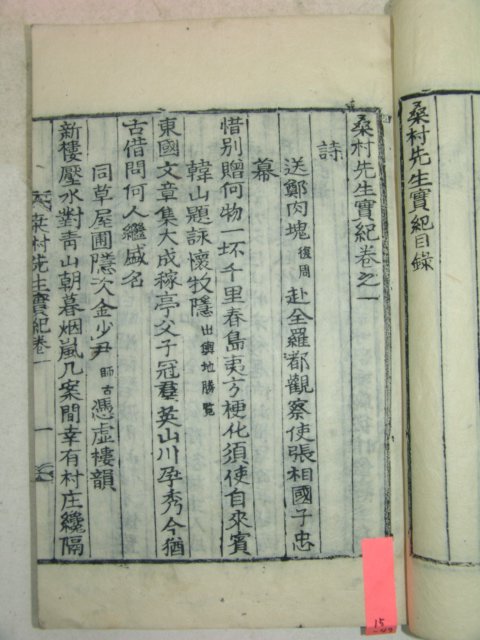 桑村先生實紀目錄
桑村先生實紀卷之一
詩
送鄭肉塊 復周 赴全羅都觀察使張相國子忠
幕
惜別贈何物一坏千里春島夷方梗化須使自來賓
韓山題詠懷牧隱 出輿地勝覽
東國文章集大成稼亭父子冠羣英山川孕秀今猶
古借問何人繼盛名
同草屋圃隱次金少尹 師古 憑虛樓韻
新樓壓水對靑山朝暮烟嵐几案間幸有村庄纔隔
桑村先生實紀卷一
一
15